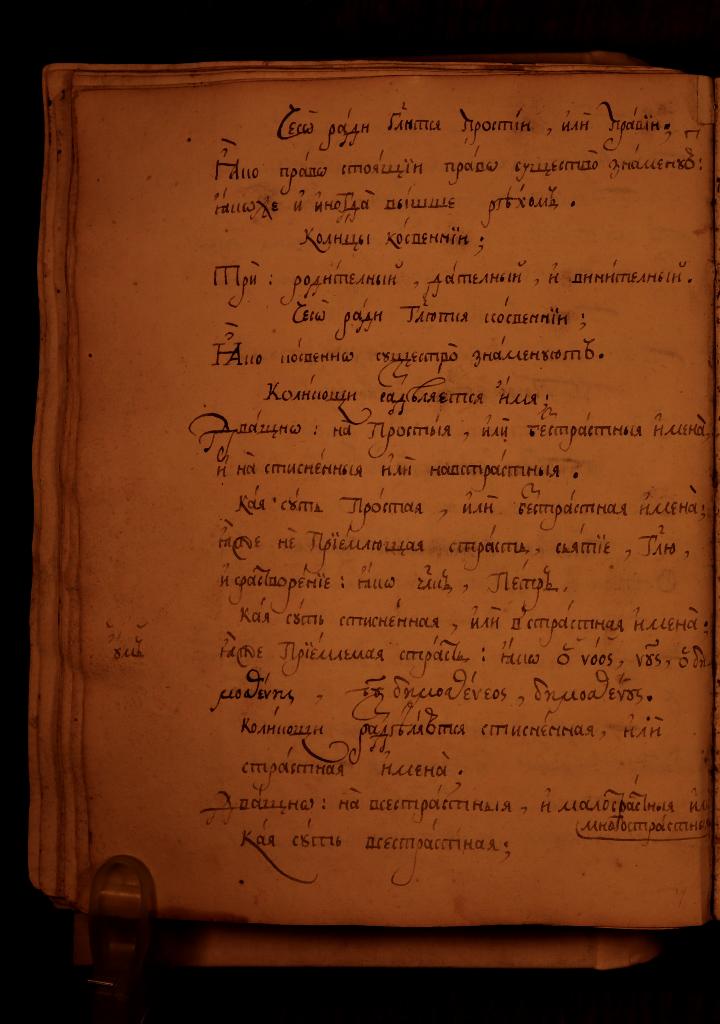 Чесѡ̀ ра́ди гл҃ются прості́и, и҆лѝ пра́віи;
Ꙗ҆́кѡ пра́вѡ стоѧ́щїи пра́вѡ существо̀ зна́менꙋютъ:
ꙗ҆́коже и҆ иногда̀ вы́шше рѣ́хомъ.
Коли́цы ко́свеннїи;
Трѝ: роди́телный, да́телный, и҆ вини́телный.
Чесѡ̀ ра́ди Гл҃ются ко́свеннїи;
Ꙗ҆́кѡ ко́свеннѡ существо̀ зна́менуютъ.
Коли́кощи раздѣлѧ́ется и҆́мя;
Два́щнѡ: на̀ Просты́я, и҆лѝ бестра́стныя и҆мена̀,
и҆ на̀ стисне́нныя и҆лѝ на встра́стныя.
Ка́я су́ть Проста́я, и҆лѝ бестра́стная и҆мена̀;
ꙗ҆̀же не Прїе́млющая стра́сть, сня́тїе, Гл҃ю,
и҆ раствор́енїе: ꙗ҆́кѡ ѹ҆́мъ, Пе́тръ.
Ка́я су́ть стисне́нная, и҆лѝ встра́стная и҆мена̀;
ѹ҆́мъ
ꙗ҆̀же Прїе́млемая стра́сть: ꙗ҆́кѡ ὁ νόος, νοῦς, ὁ δη
μοσθένης, τοῦ δημοσθένεος, δημοσθένους.
Коли́кощи раздѣлѧ́ются стисне́нная, и҆лѝ
стра́стная и҆мена̀.
Два́щнѡ: на̀ всестра́стныя, и҆ малостра́стныя и҆лѝ
многостра́стны
Ка́я су́ть всестра́стная;